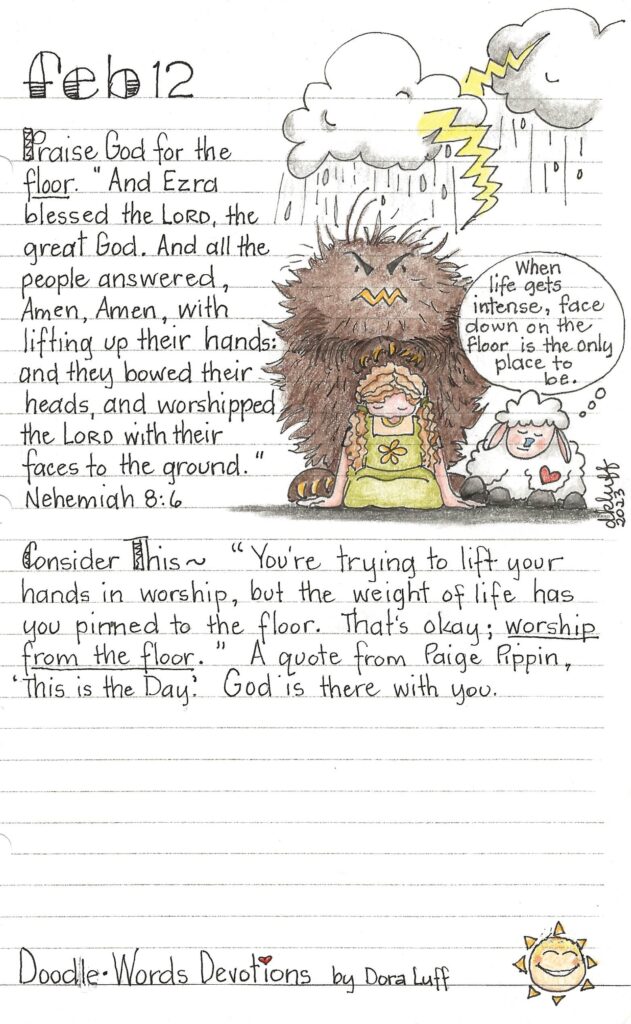 feb 12
Praise God for the
floor. "And Ezra
blessed the LORD, the
great God. And all the
people answered,
Amen, Amen, with
lifting up their hands:
and they bowed their
heads, and worshipped
the LORD with their
faces to the ground."
Nehemiah 8:6
When
life gets
intense, face
down on the
floor is the only
place to
be.
dkluff
2023
Consider This~ "You're trying to lift your
hands in worship, but the weight of life has
you pinned to the floor. That's okay; worship
from the floor." A quote from Paige Pippin,
'This is the Day.' God is there with you.
Doodle·Words Devotions by Dora Luff